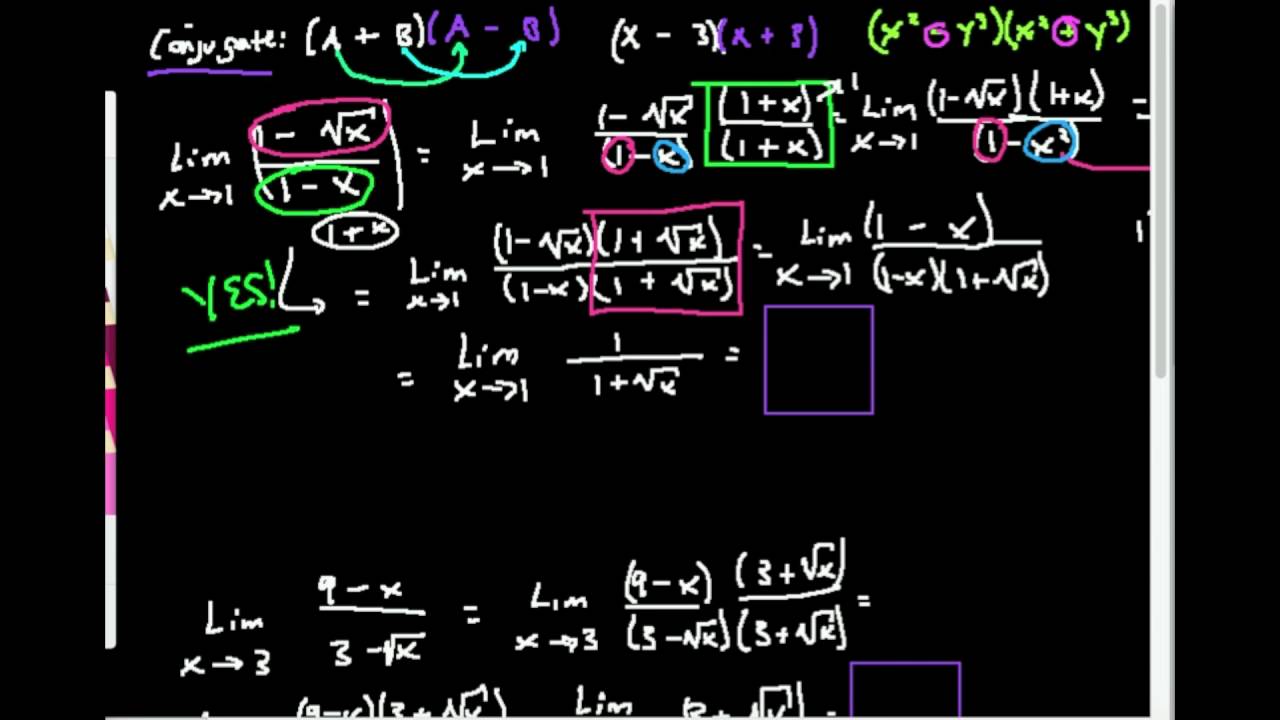 Conjugate: (A + B)(A - B) (x - 3)(x + 3) (x² - y³)(x² + y³)
Lim x→1 (1 - √x)/(1 - x) = Lim x→1 (1 - √x)/(1 - x) (1 + x)/(1 + x) = Lim x→1 (1 - √x)(1 + x)/(1 - x²) =
1 + x
YES! = Lim x→1 (1 - √x)(1 + √x)/(1 - x)(1 + √x) = Lim x→1 (1 - x)/(1 - x)(1 + √x)
= Lim x→1 1/(1 + √x) =
Lim x→3 (9 - x)/(3 - √x) = Lim x→3 (9 - x)/(3 - √x) (3 + √x)/(3 + √x) =
(9 - x)(3 + √x) Lim 3 + √x =